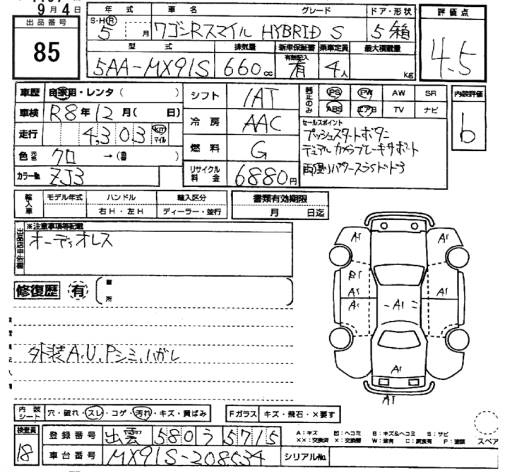 9月4日
出品番号
85
年式 車名 グレード ドア・形状
S・H・Ⓡ 5 月 ワゴンRスマイル HYBRID S 5箱
型式 排気量 新車保証書 乗車定員 最大積載量
5AA-MX91S 660cc 有 4人 kg
評価点
4.5
内装評価
b
車歴 自家用・レンタ( )
車検 R8年12月( 日)
走行 4,303 km マイル
色 クロ →( )
カラー№ ZJ3
シフト IAT
冷房 AAC
燃料 G
リサイクル料金 6880円
PS PW AW SR
ABS エアB TV ナビ
セールスポイント
プッシュスタートボタン
デュアルカメラブレーキサポート
両側パワースライドドア
輸入車 モデル年式 ハンドル 輸入区分
年 右H・左H ディーラー・並行
書類有効期限
月 日迄
※注意事項等記載
オーディオレス
修復歴 有 箇所
外装A.U.Pシミ、ハガレ
A1 A1
B1 A1
A1 A1 A1
A1 A1
A1
内装シート 穴・破れ・スレ・コゲ・汚れ・キズ・黄ばみ
Fガラス キズ・飛石・X要す
スペア
検査員 18
登録番号 出雲 580 う 5715
車台番号 MX91S-208534 シリアル№
A:キズ U:ヘコミ B:キズ&ヘコミ S:サビ
XX:交換済 X:交換要 W:波有 C:腐食有 P:塗装